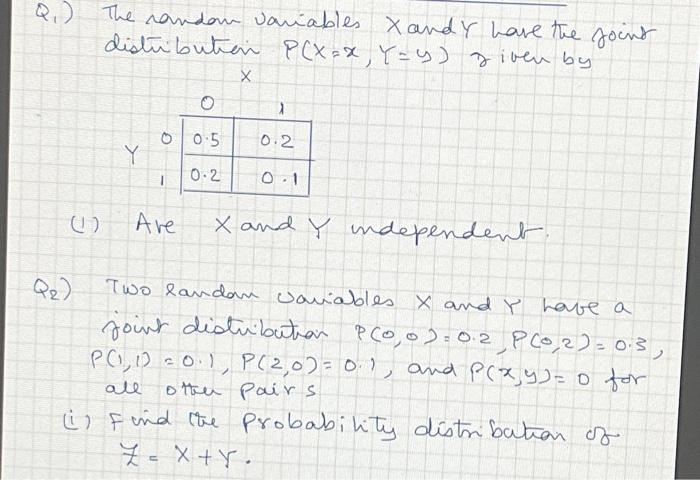 Q1) The random variables X and Y have the joint
distribution P(X=x, Y=y) given by
X
0 1
Y 0 0.5 0.2
1 0.2 0.1
(1) Are X and Y independent.
Q2) Two random variables X and Y have a
joint distribution P(0,0)=0.2, P(0,2)=0.3,
P(1,1)=0.1, P(2,0)=0.1, and P(x,y)=0 for
all other pairs
(i) Find the probability distribution of
Z = X+Y.